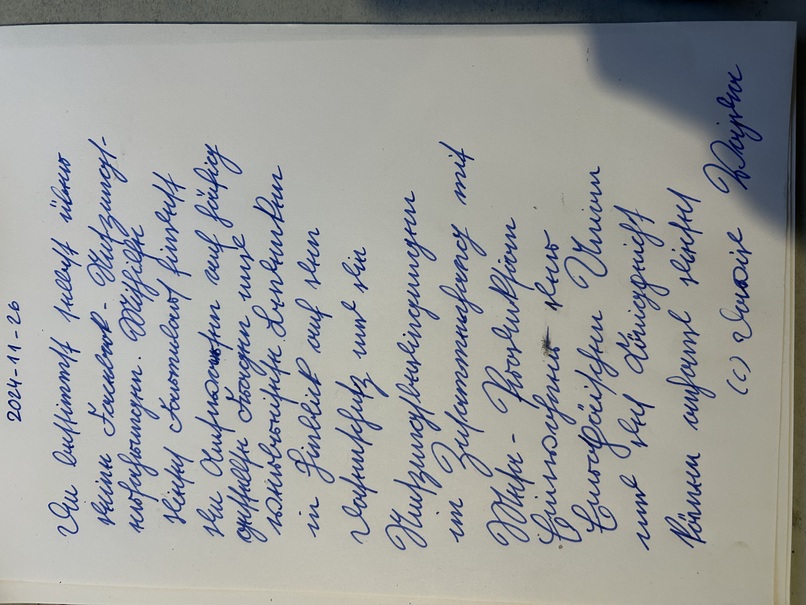 2024-11-26
Du bestimmst selbst über
deine Facebook-Nutzungs-
erfahrungen. Mithilfe
dieses Formulars findest
du Antworten auf häufig
gestellte Fragen und
verbreitete Bedenken
in Hinblick auf den
Datenschutz und die
Nutzungsbedingungen
im Zusammenhang mit
Meta-Produkten
Einwohner der
Europäischen Union
und des Königreichs
können anhand dieses
(c) David